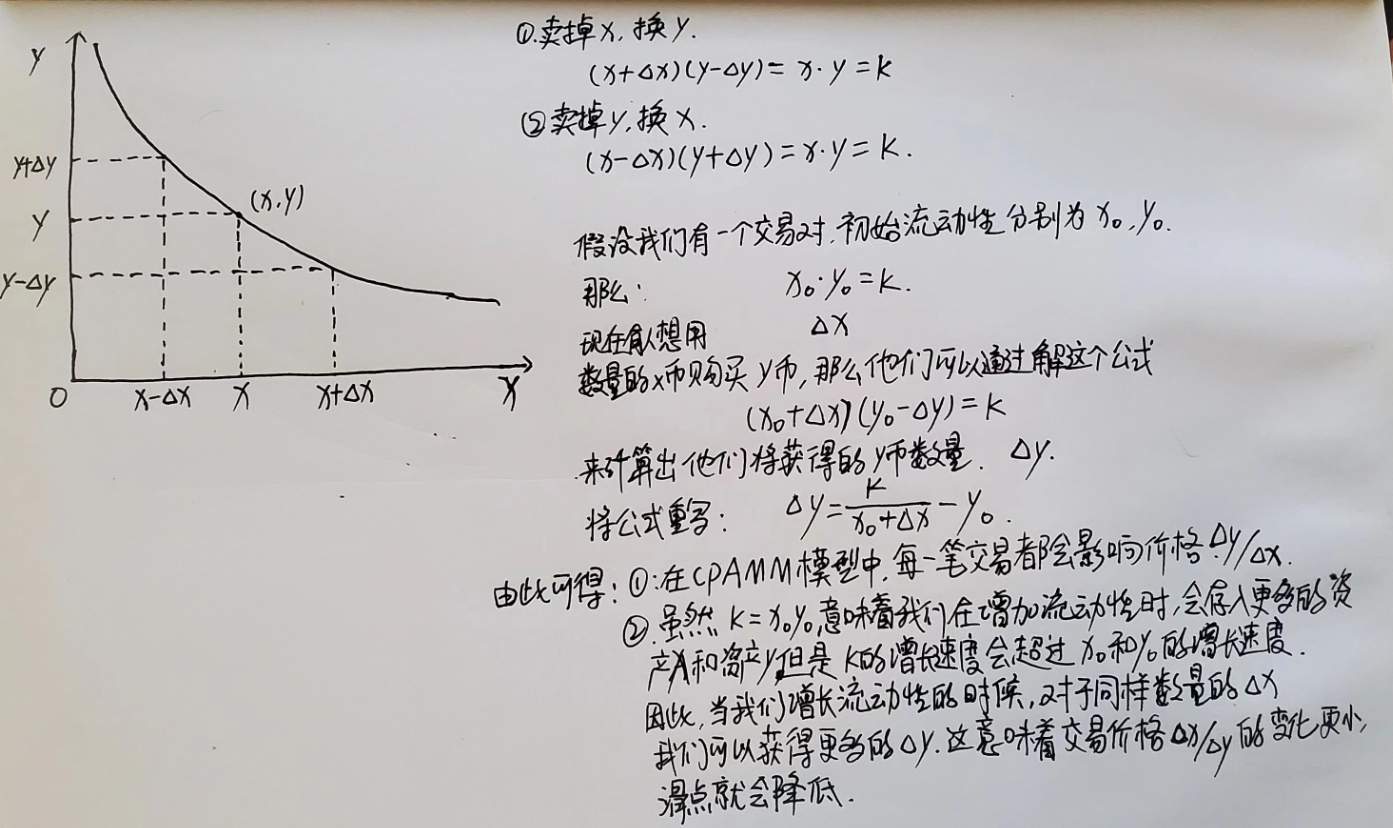 y
y+Δy
y
y-Δy
(x,y)
O
x-Δx
x
x+Δx
X
①.卖掉x,换y.
(x+Δx)(y-Δy)=x·y=k
②卖掉y,换x.
(x-Δx)(y+Δy)=x·y=k.
假设我们有一个交易对,初始流动性分别为x₀,y₀.
那么: x₀·y₀=k.
现在有人想用 Δx
数量的x币购买y币,那么他们可以通过解这个公式
(x₀+Δx)(y₀-Δy)=k
来计算出他们将获得的y币数量. Δy.
将公式重写: Δy=k/(x₀+Δx)-y₀.
由此可得:①:在CPAMM模型中,每一笔交易都会影响价格Δy/Δx.
②.虽然k=x₀y₀,意味着我们在增加流动性时,会存入更多的资
产X和资产y,但是k的增长速度会超过x₀和y₀的增长速度.
因此,当我们增长流动性的时候,对于同样数量的Δx
我们可以获得更多的Δy.这意味着交易价格Δx/Δy的变化更小,
滑点就会降低.